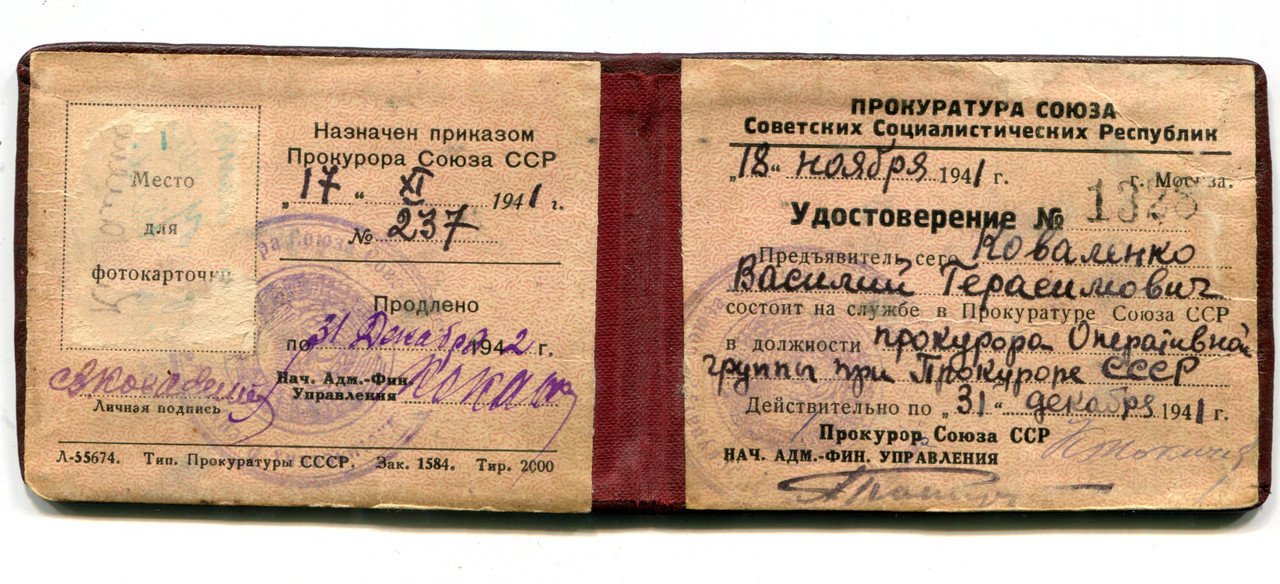 Место
для
фотокарточки
Личная подпись
Назначен приказом
Прокурора Союза ССР
„17“ XI 1941 г.
№ 237
Продлено
по 31 Декабря 1942 г.
Нач. Адм.-Фин.
Управления
Л-55674. Тип. Прокуратуры СССР. Зак. 1584. Тир. 2000
ПРОКУРАТУРА СОЮЗА
Советских Социалистических Республик
„18“ ноября 1941 г. г. Москва.
Удостоверение № 1328
Предъявитель сего Коваленко
Василий Герасимович
состоит на службе в Прокуратуре Союза ССР
в должности прокурора Оперативной
группы при Прокуроре СССР
Действительно по „31“ декабря 1941 г.
Прокурор Союза ССР
НАЧ. АДМ.-ФИН. УПРАВЛЕНИЯ